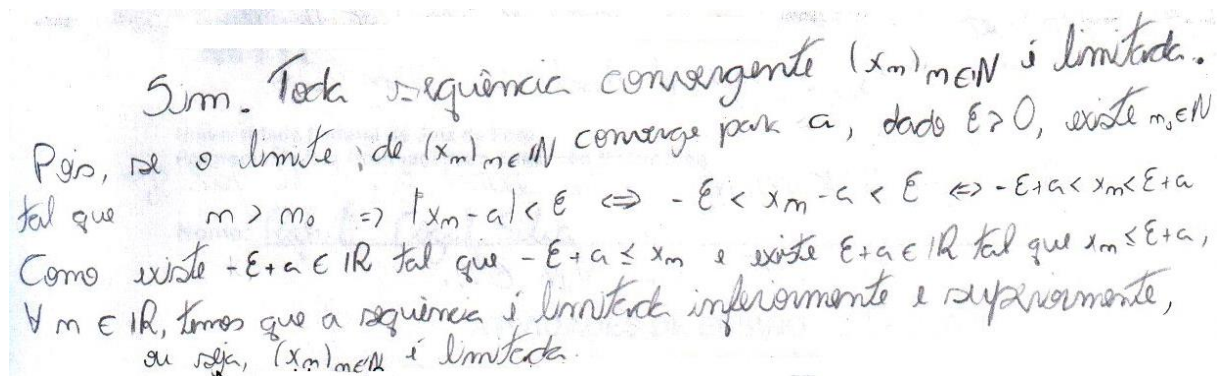 Sim. Toda sequência convergente (xₙ)ₙ∈ℕ é limitada.
Pois, se o limite de (xₙ)ₙ∈ℕ converge para a, dado ε>0, existe n₀∈ℕ
tal que n > n₀ => |xₙ-a| < ε ⇔ -ε < xₙ-a < ε ⇔ -ε+a < xₙ < ε+a
Como existe -ε+a ∈ ℝ tal que -ε+a ≤ xₙ e existe ε+a ∈ ℝ tal que xₙ ≤ ε+a,
∀ n ∈ ℝ, temos que a sequência é limitada inferiormente e superiormente,
ou seja, (xₙ)ₙ∈ℕ é limitada.